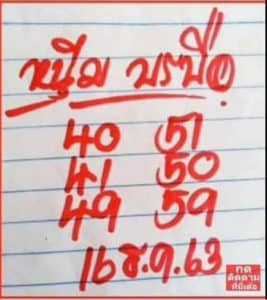 หนึ่ม บรบือ
40 51
41 50
49 59
16 ธ.ค.63
กด
ติดตาม
ที่นี่เด้อ